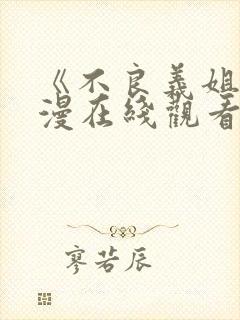 《不良義姐
漫在綫觀看
廖若辰